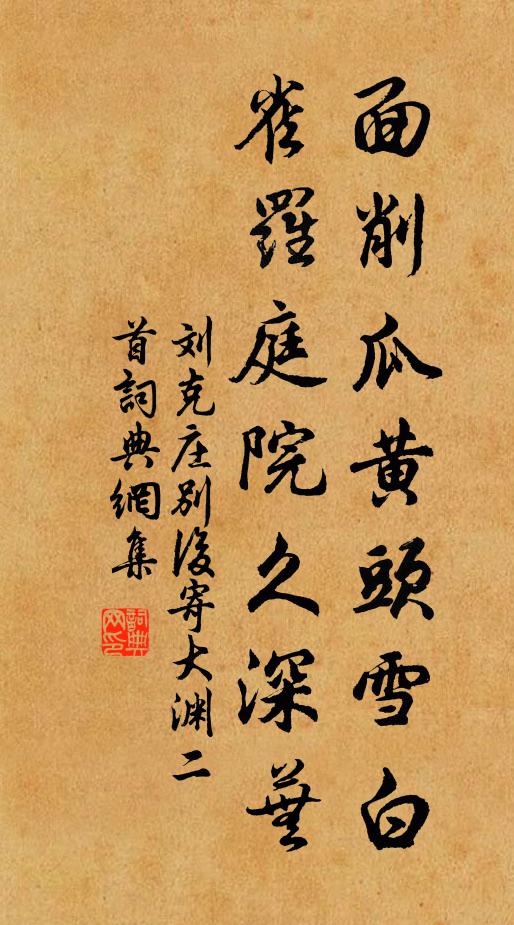 面削瓜黄頭雪白
雀羅庭院久深蕪
刘克庄别後寄大渊二
首詞典網集
詞典網印